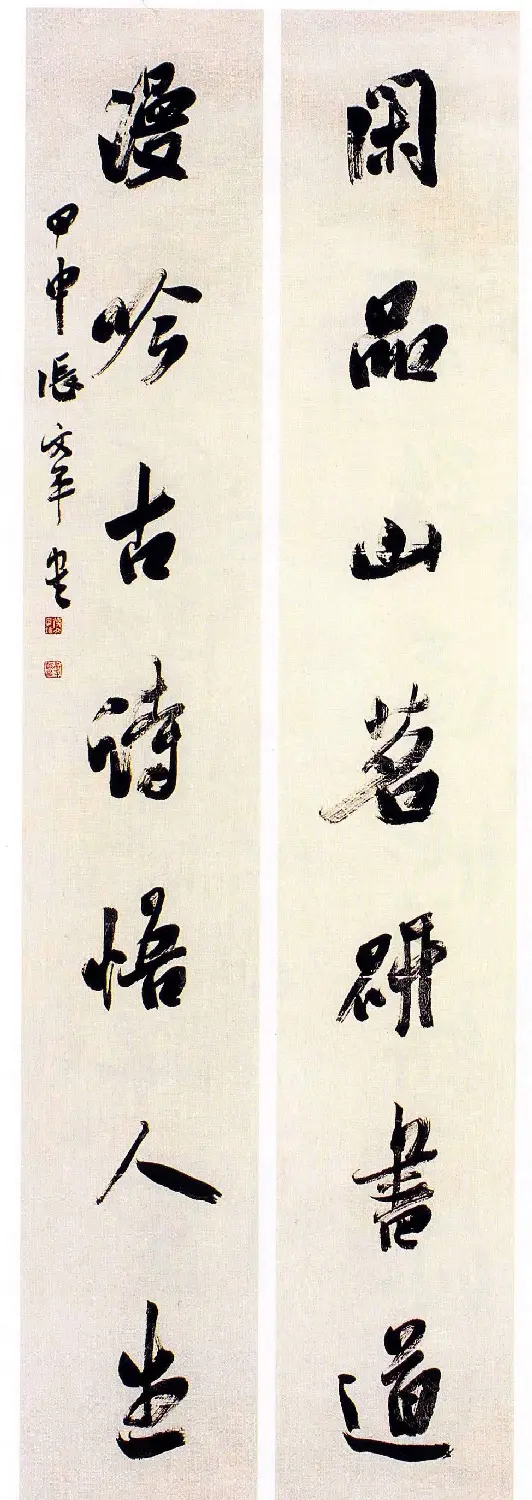 閑品山茗研書道
漫吟古诗悟人生
甲申 張文平书